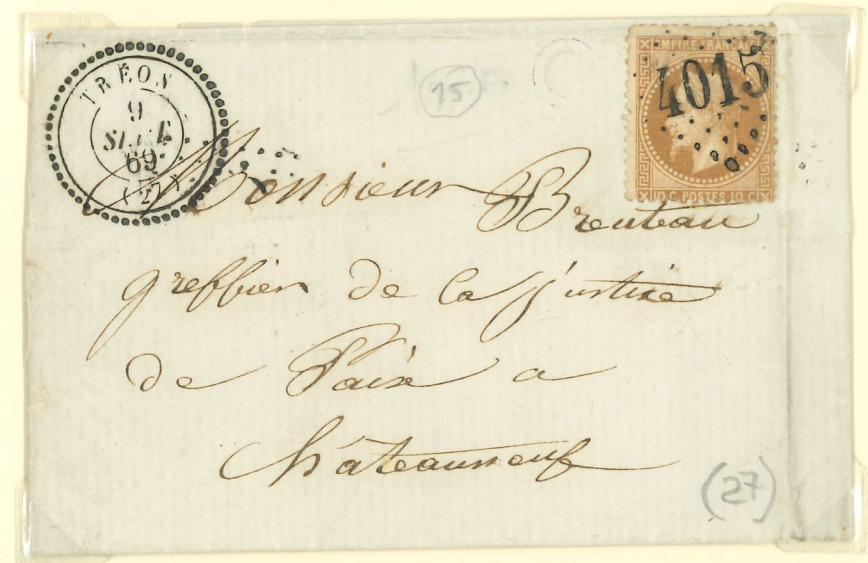 TRÉON
9
SEPT.
69
(27)
15
EMPIRE FRANÇAIS
4015
10 C. POSTES 10 C.
Monsieur Breuteau
greffier de la justice
de Paix a
Châteauneuf
(27)